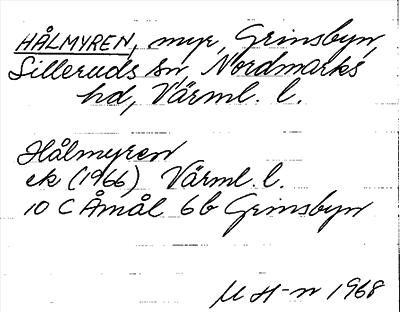 HÅLMYREN, myr, Grinsbyn,
Silleruds sn, Nordmarks
hd, Värml. l.
Hålmyren
ek (1966) Värml. l.
10 C Åmål 6b Grinsbyn
M H-n 1968